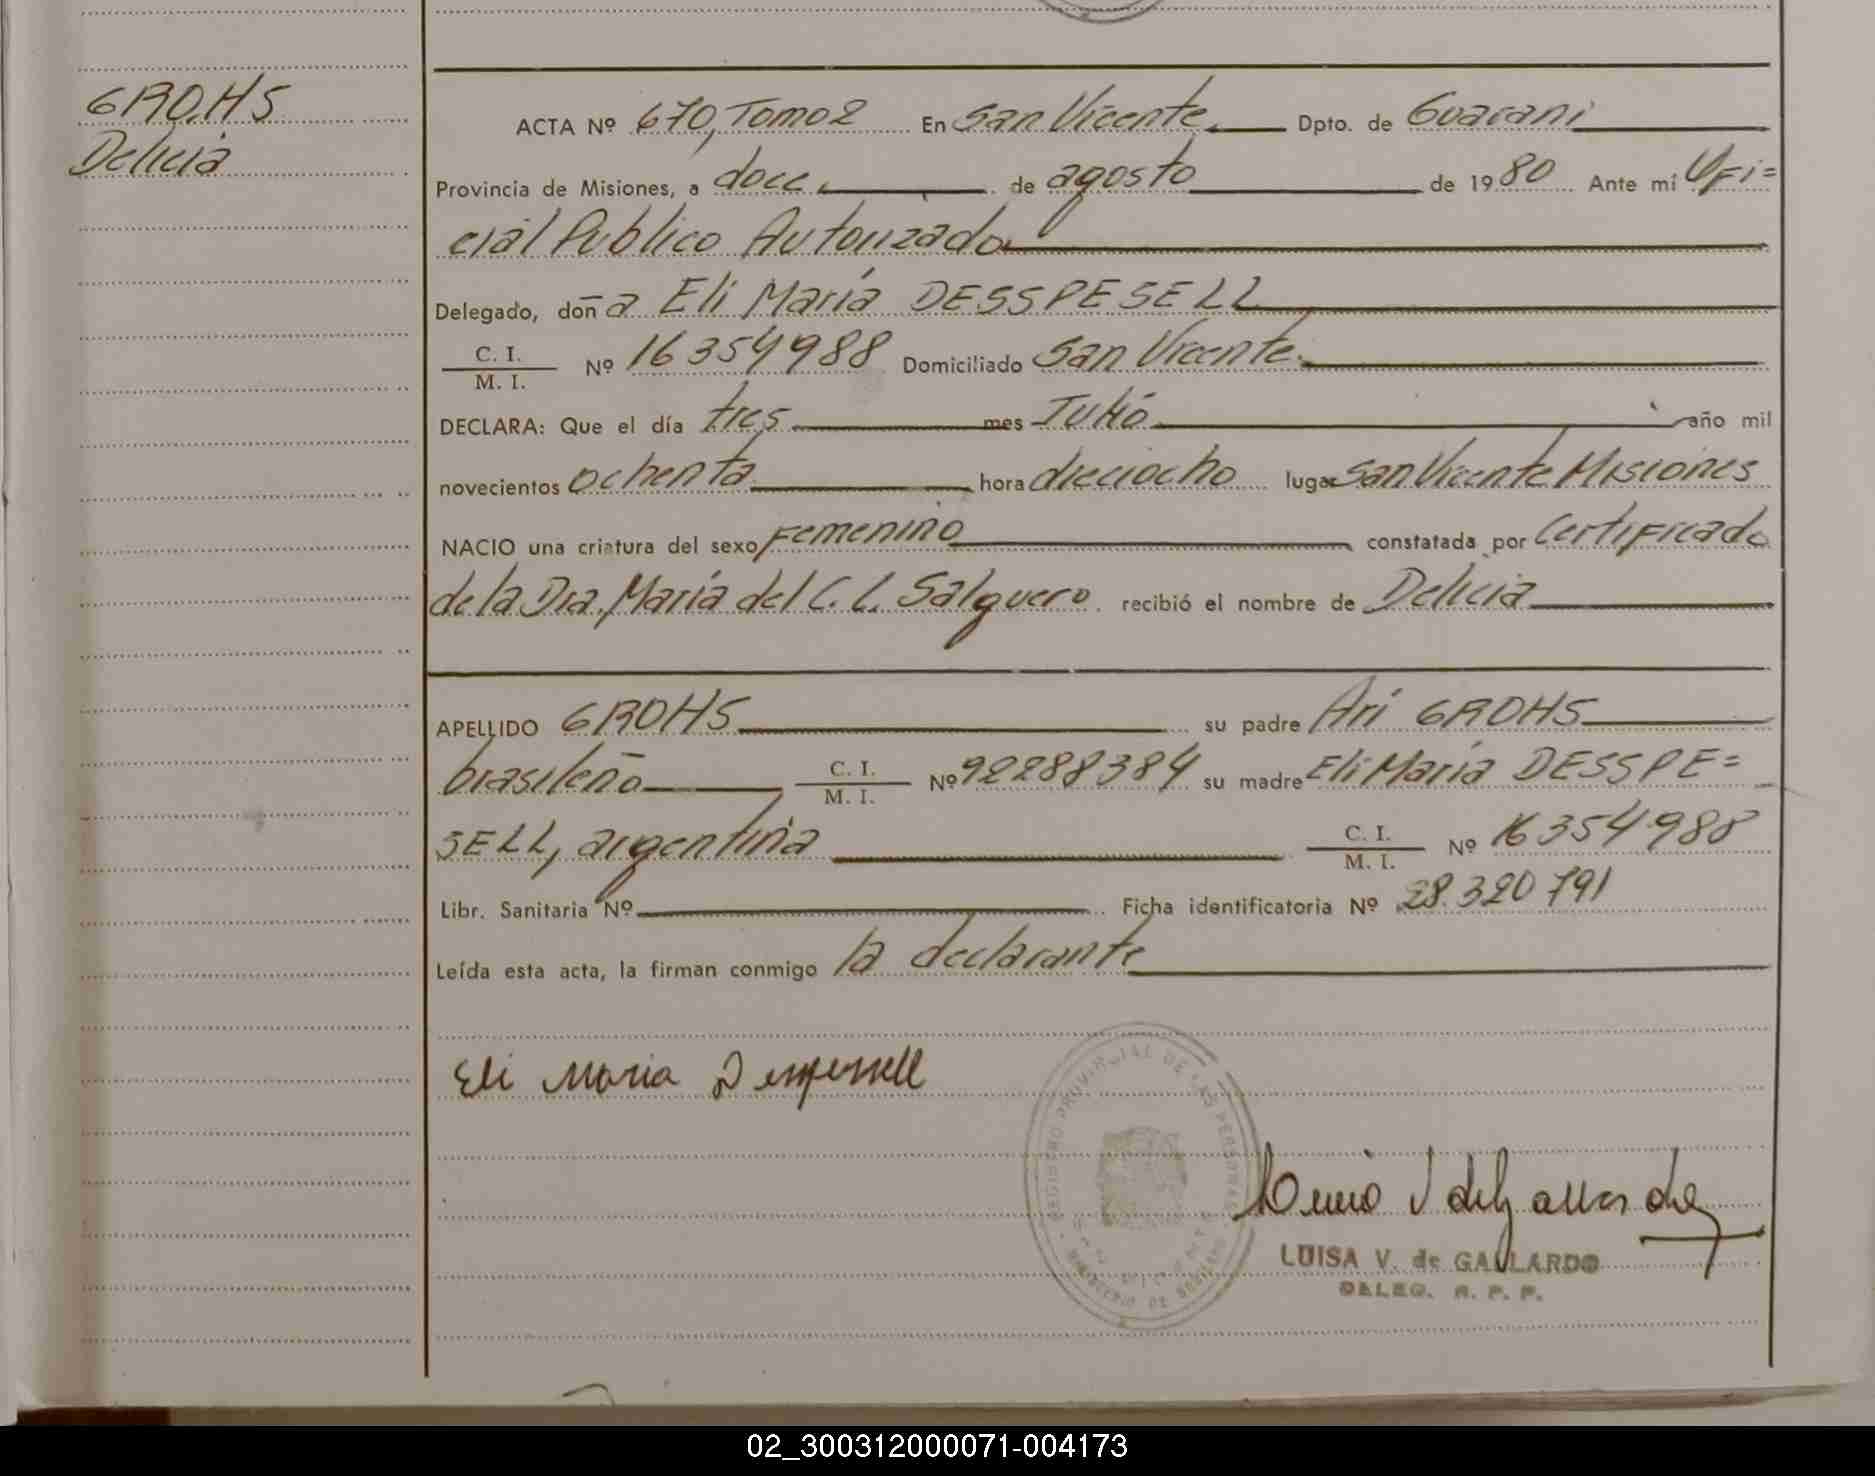 GROHS
Delicia
ACTA Nº 670, Tomo 2 En San Vicente Dpto. de Guarani
Provincia de Misiones, a doce de agosto de 1980 Ante mí Ofi=
cial Publico Autorizado
Delegado, doña Eli María DESSPESELL
C. I.
M. I. Nº 16354988 Domiciliado San Vicente
DECLARA: Que el día tres mes Julio año mil
novecientos ochenta hora dieciocho lugar San Vicente Misiones
NACIO una criatura del sexo Femenino constatada por Certificado
de la Dra. María del C. L. Salguero recibió el nombre de Delicia
APELLIDO GROHS su padre Ari GROHS
brasileño C. I.
M. I. Nº 92288384 su madre Eli María DESSPE=
SELL, argentina C. I.
M. I. Nº 16354988
Libr. Sanitaria Nº Ficha identificatoria Nº 28.320791
Leída esta acta, la firman conmigo la declarante
Eli Maria Despessell
REGISTRO PROVINCIAL DE LAS PERSONAS
LUISA V. de GALLARDO
DELEG. R. P. P.
02_300312000071-004173